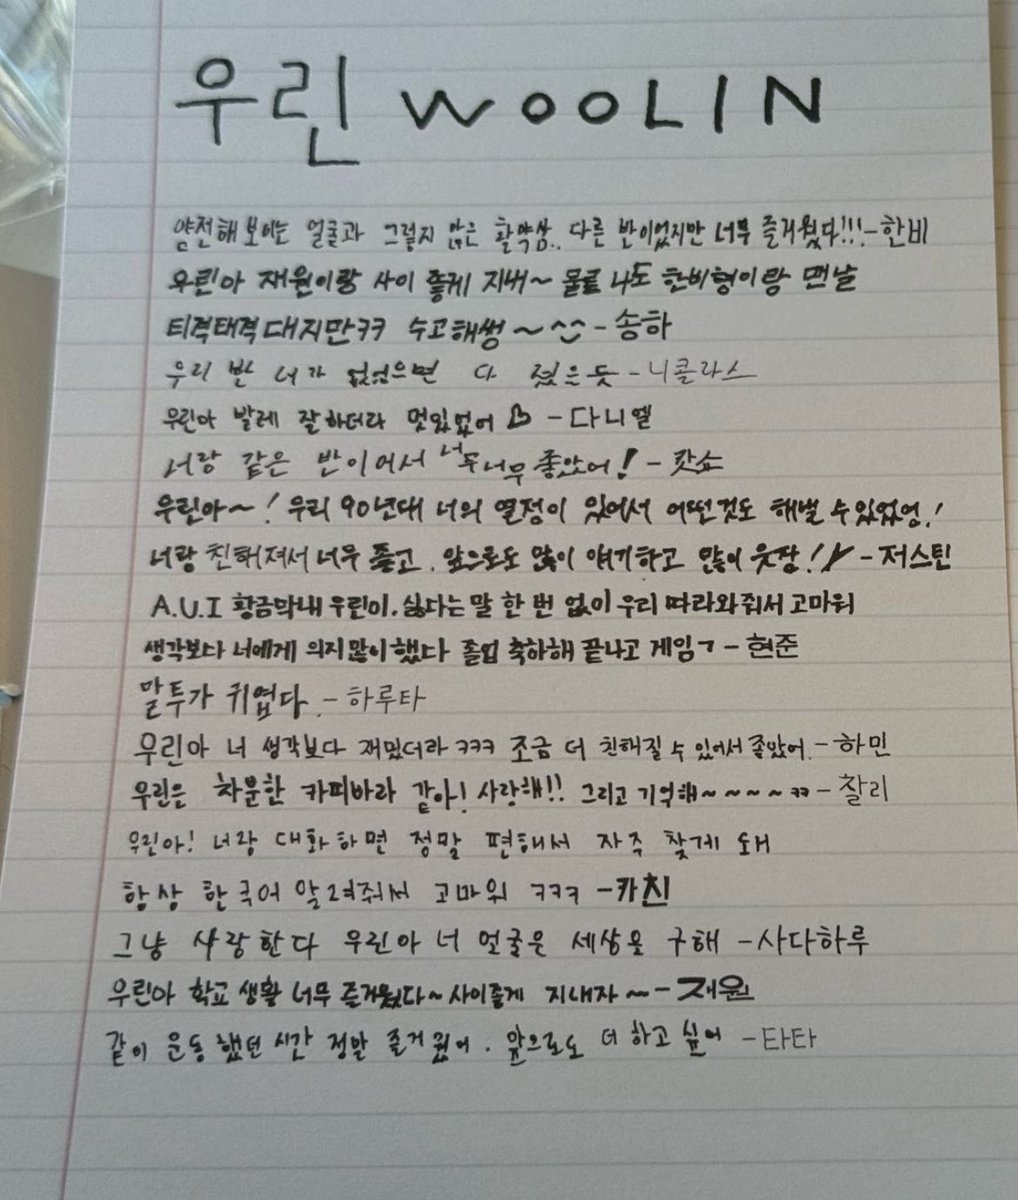 우린 WOOLIN
얌전해 보이는 얼굴과 그렇지 않은 활약상.. 다른 반이었지만 너무 즐거웠다!!! - 한비
우린아 재원이랑 사이 좋게 지내~ 물론 나도 한비형이랑 맨날
티격태격 대지만ㅋㅋ 수고해썽~^^ - 송하
우리 반 너가 없었으면 다 졌은듯 - 니콜라스
우린아 발레 잘하더라 멋있었어 - 다니엘
너랑 같은 반이어서 너무너무 좋았어! - 캇쇼
우린아~! 우리 90년대 너의 열정이 있어서 어떤것도 해낼 수 있었엉!
너랑 친해져서 너무 좋고, 앞으로도 많이 얘기하고 많이 웃장! - 저스틴
A.U.I 황금막내 우린이. 싫다는 말 한 번 없이 우리 따라와줘서 고마워
생각보다 너에게 의지많이했다 졸업 축하해 끝나고 게임ㄱ - 현준
말투가 귀엽다. - 하루타
우린아 너 생각보다 재밌더라 ㅋㅋㅋ 조금 더 친해질 수 있어서 좋았어. - 하민
우린은 차분한 카피바라 같아! 사랑해!! 그리고 기억해~~~~ㅋㅋ - 찰리
우린아! 너랑 대화하면 정말 편해서 자주 찾게 돼
항상 한국어 알려줘서 고마워 ㅋㅋㅋ - 카친
그냥 사랑한다 우린아 너 얼굴은 세상을 구해 - 사다하루
우린아 학교 생활 너무 즐거웠다~ 사이좋게 지내자~ - 재원
같이 운동했던 시간 정말 즐거웠어. 앞으로도 더 하고 싶어 - 타타